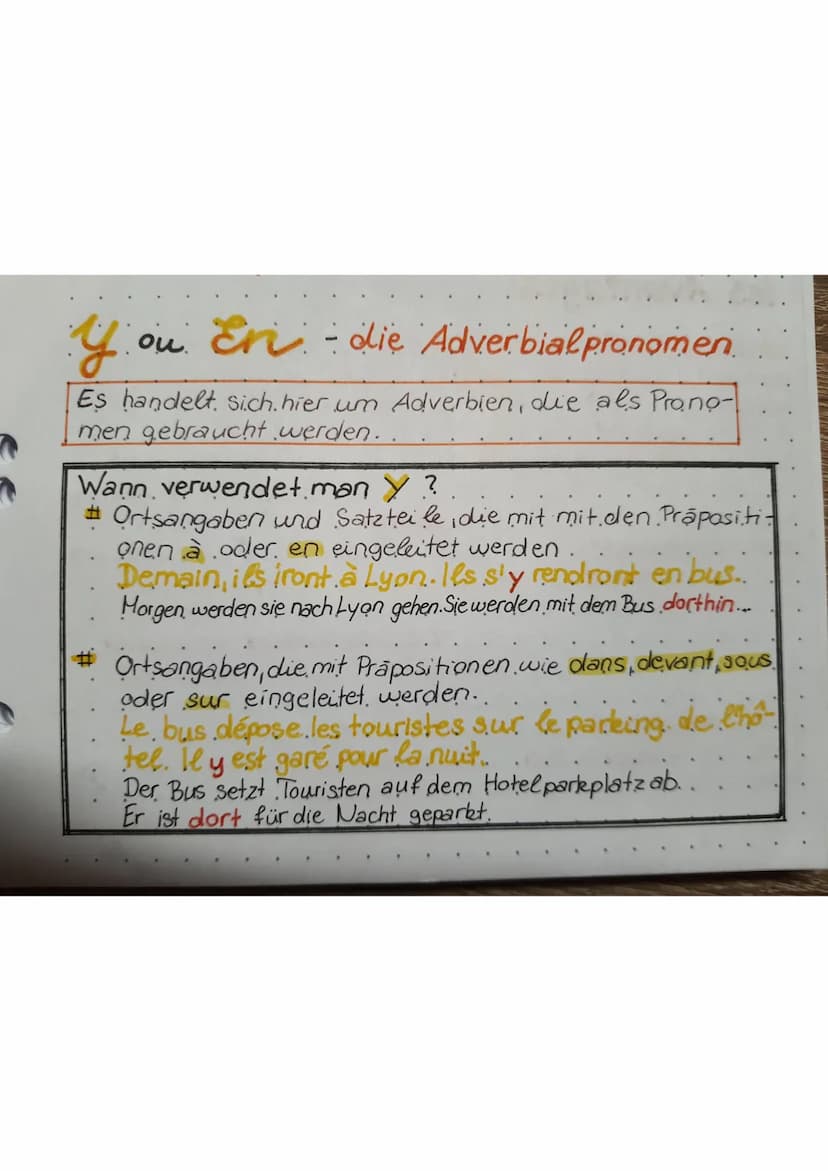 Y ou En - die Adverbialpronomen
Es handelt sich hier um Adverbien, die als Prono-
men gebraucht werden.
Wann verwendet man Y ?
# Ortsangaben und Satzteile, die mit mit den Präpositi-
onen à oder en eingeleitet werden.
Demain, ils iront à Lyon. Ils s'y rendront en bus.
Morgen werden sie nach Lyon gehen. Sie werden mit dem Bus dorthin...
# Ortsangaben, die mit Präpositionen wie dans, devant, sous
oder sur eingeleitet werden.
Le bus dépose les touristes sur le parking de l'hô-
tel. Il y est garé pour la nuit.
Der Bus setzt Touristen auf dem Hotelparkplatz ab.
Er ist dort für die Nacht geparkt.